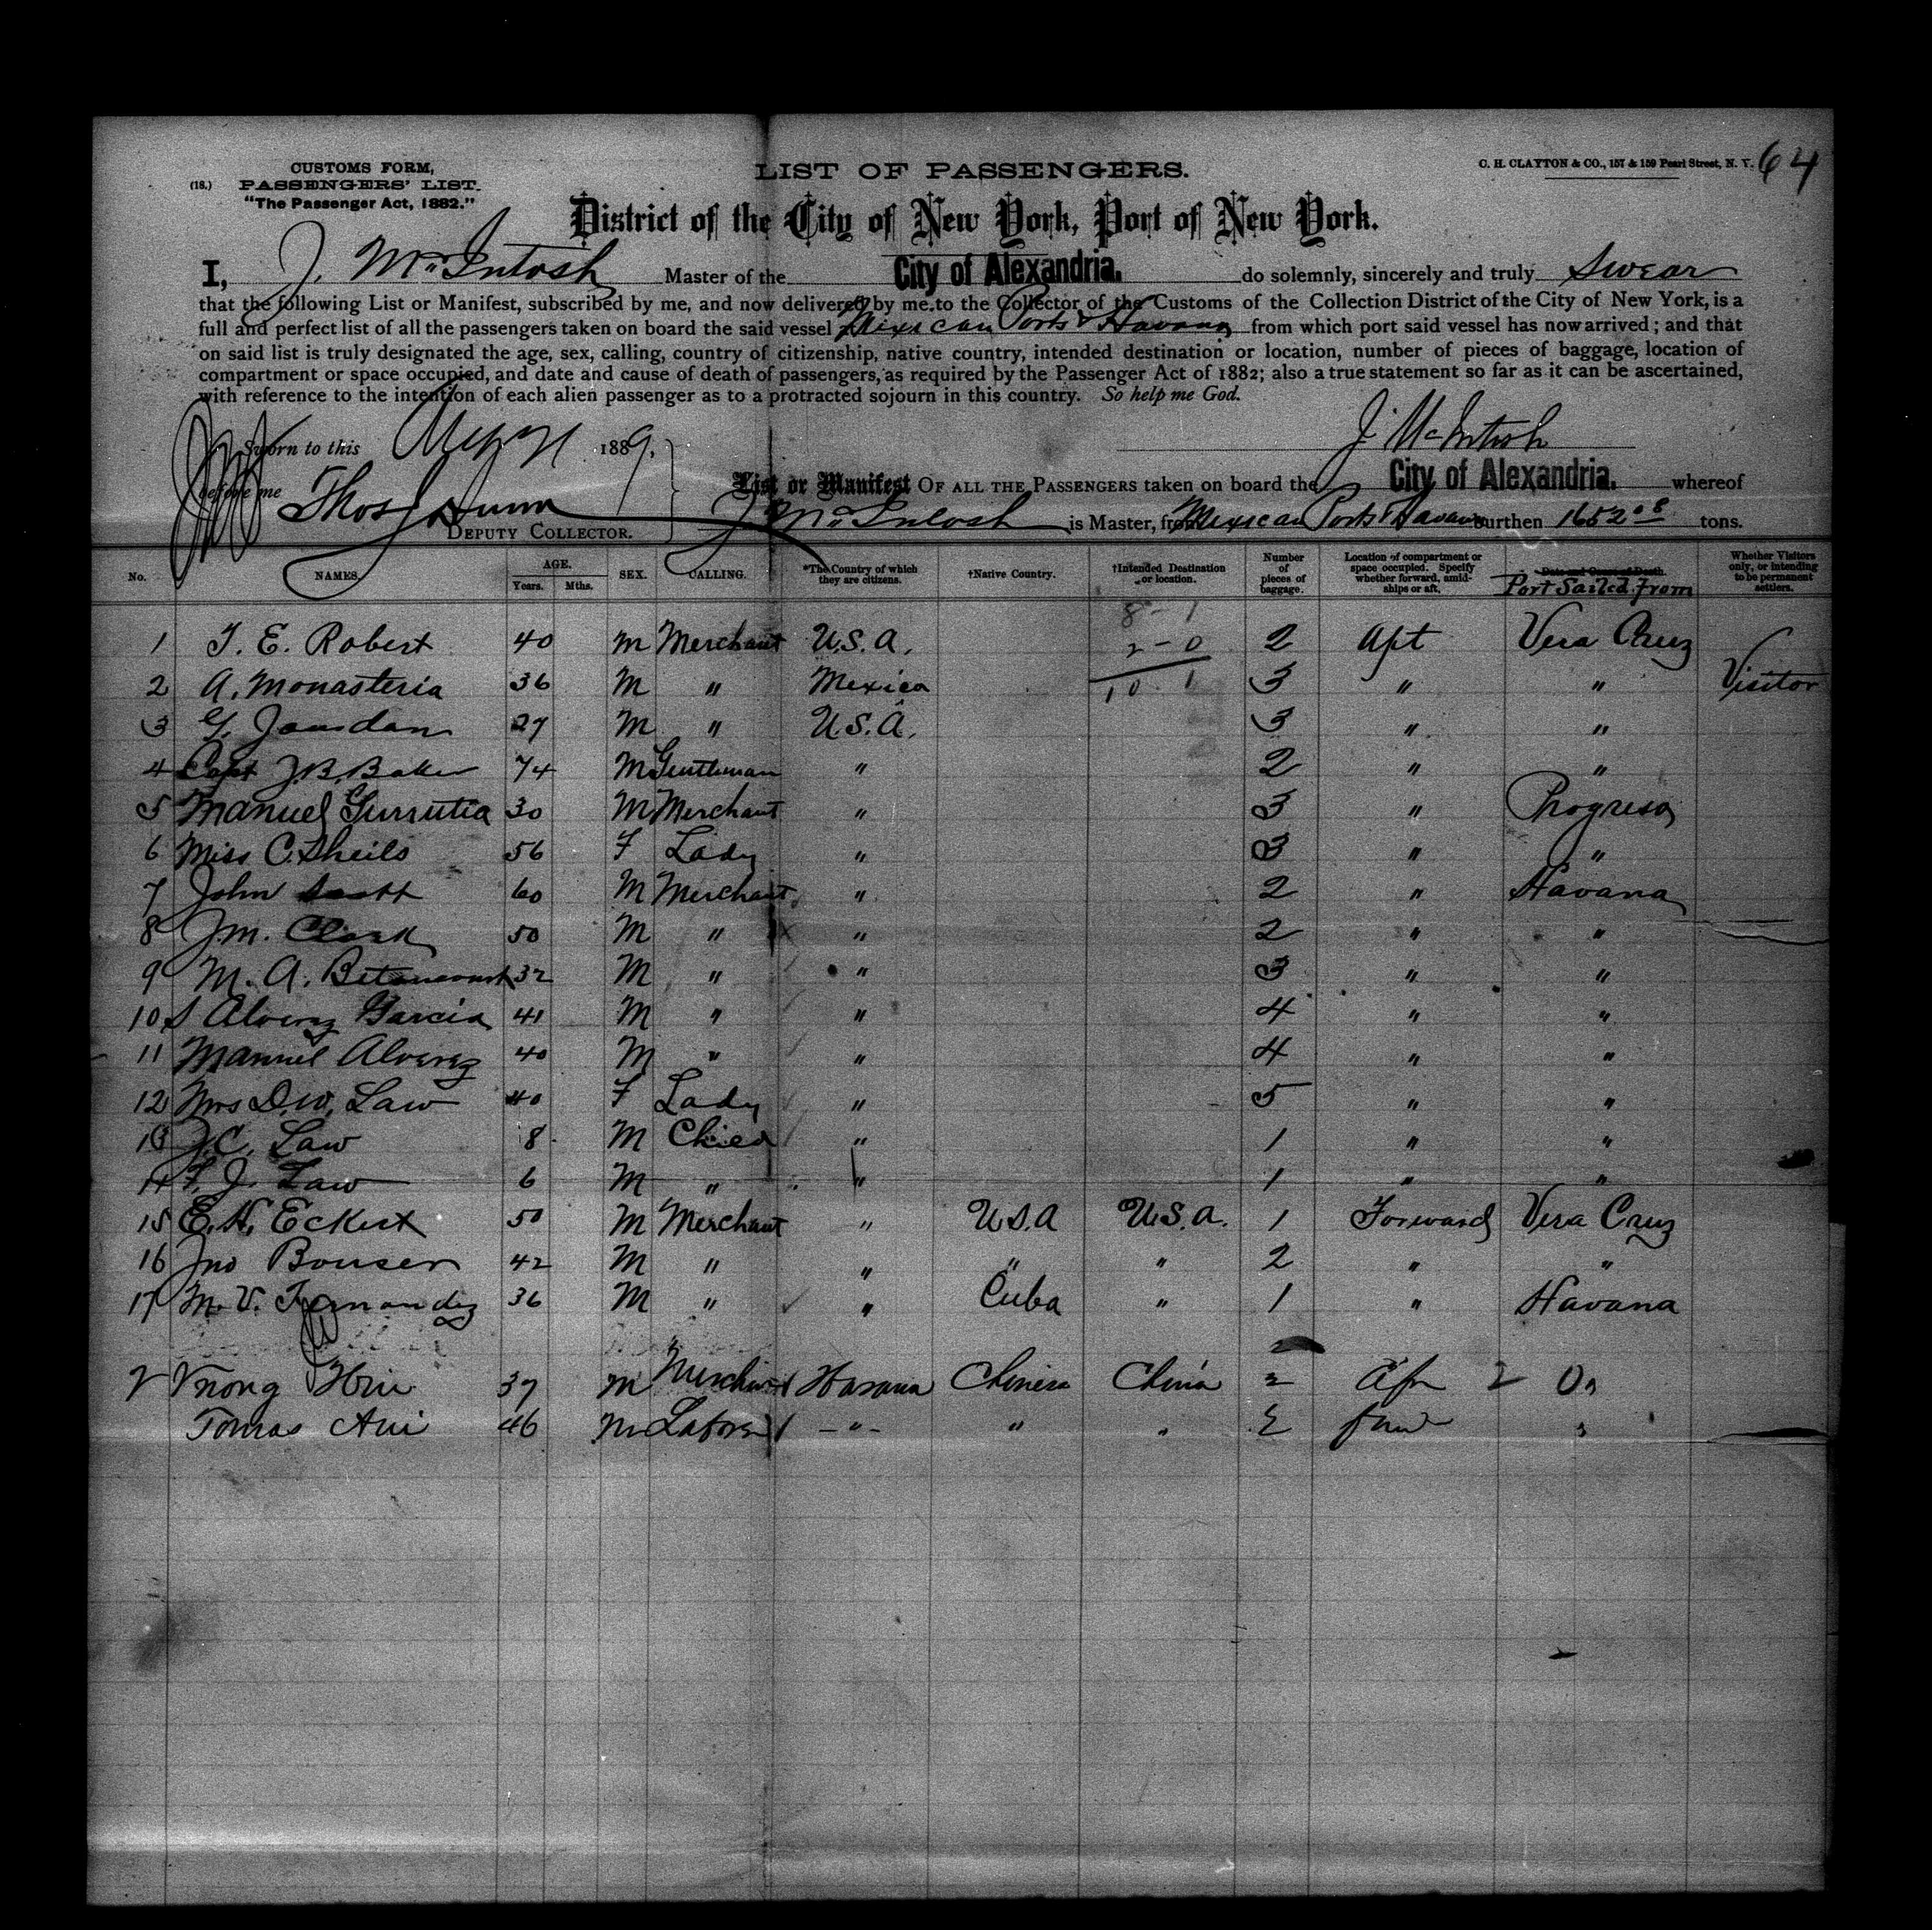 64
CUSTOMS FORM,
(18.) PASSENGERS' LIST.
"The Passenger Act, 1882."
LIST OF PASSENGERS.
C. H. CLAYTON & CO., 157 & 159 Pearl Street, N. Y.
District of the City of New York, Port of New York.
I, J. McIntosh Master of the City of Alexandria. do solemnly, sincerely and truly swear
that the following List or Manifest, subscribed by me, and now delivered by me to the Collector of the Customs of the Collection District of the City of New York, is a
full and perfect list of all the passengers taken on board the said vessel Mexican Ports & Havana from which port said vessel has now arrived; and that
on said list is truly designated the age, sex, calling, country of citizenship, native country, intended destination or location, number of pieces of baggage, location of
compartment or space occupied, and date and cause of death of passengers, as required by the Passenger Act of 1882; also a true statement so far as it can be ascertained,
with reference to the intention of each alien passenger as to a protracted sojourn in this country. So help me God.
Sworn to this 1889, J. McIntosh
before me Thos J Dunn
DEPUTY COLLECTOR.
List or Manifest OF ALL THE PASSENGERS taken on board the City of Alexandria. whereof
J. McIntosh is Master, from Mexican Ports & Havana burthen 1652 08 tons.
No. NAMES. AGE. Years. Mths. SEX. CALLING. *The Country of which they are citizens. †Native Country. †Intended Destination or location. Number of pieces of baggage. Location of compartment or space occupied. Specify whether forward, amidships or aft. Date and Cause of Death. Port Sailed from Whether Visitors only, or intending to be permanent settlers.
8 - 1
1 T. E. Robert 40 M Merchant U.S.A. 2 - 0 2 Aft Vera Cruz
2 A. Monasteria 36 M " Mexico 10 1 3 " " Visitor
3 G. Jourdan 27 M " U.S.A. 3 " "
4 Capt J.B. Baker 74 M Gentleman " 2 " "
5 Manuel Gurrutia 30 M Merchant " 3 " Progreso
6 Miss C. Sheils 56 F Lady " 3 " "
7 John Scott 60 M Merchant " 2 " Havana
8 J.M. Clark 50 M " " 2 " "
9 M. A. Betancourt 32 M " " 3 " "
10 S Alvarez Garcia 41 M " " 4 " "
11 Manuel Alverez 40 M " " 4 " "
12 Mrs D.W. Law 40 F Lady " 5 " "
13 J.C. Law 8 M Child " 1 " "
14 F. J. Law 6 M " " 1 " "
15 E. H. Eckert 50 M Merchant " U.S.A U.S.A. 1 Forward Vera Cruz
16 Jno Bouser 42 M " " " " 2 " "
17 M. V. Fernandez 36 M " " Cuba " 1 " Havana
37 M Merchant Havana Chinese China 2 Aft 2 Do
Tomas 46 M Laborer - " - " " 2 forwd "